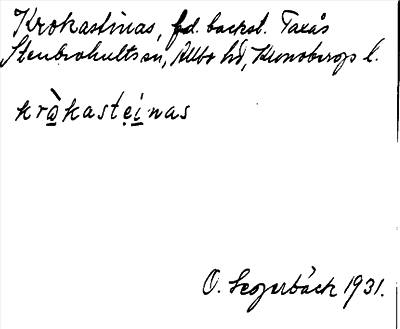 Krokastinas, fd. backst. Taxås
Stenbrohults sn, Allbo hd, Kronobergs l.
kràkasteinas
O. Segerbäck 1931.